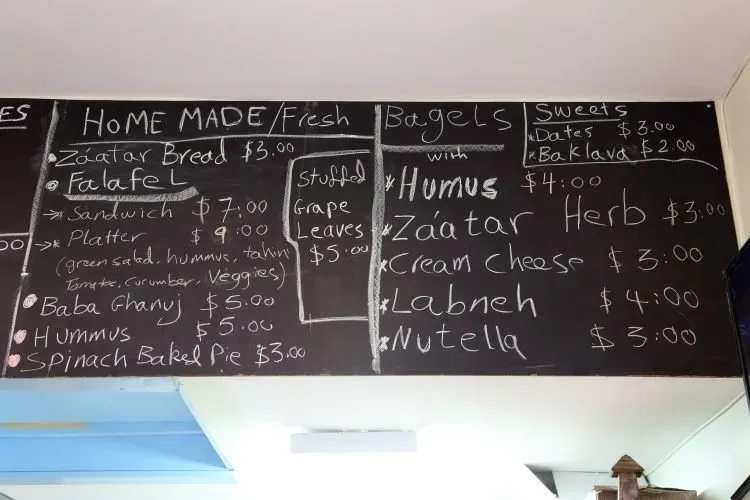 ES
00
HOME MADE/Fresh
Záatar Bread $3.00
Falafel
Sandwich $7:00
* Platter $9:00
(green salad, hummus, tahin
Tomato, Cucumber, Veggies)
Baba Ghanuj $5.00
Hummus $5.00
Spinach Baked Pie $3.00
Stuffed
Grape
Leaves
$5.00
Bagels
with
* Humus $4:00
* Záatar Herb $3:00
* Cream Cheese $3:00
* Labneh $4:00
* Nutella $3:00
Sweets
* Dates $3.00
* Baklava $2.00